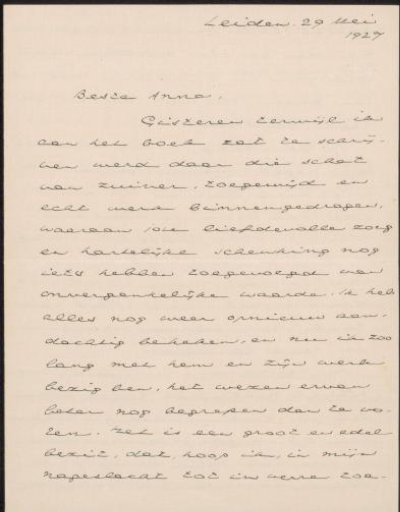 Leiden. 29 Mei
1927
Beste Anna.
Gisteren terwijl ik
aan het boek zat te schrij-
ven werd daar die schat
van zuiver, toegewijd en
echt werk binnengedragen,
waaraan jouw liefdevolle zorg
en hartelijke schenking nog
iets hebben toegevoegd van
onvergankelijke waarde. Ik heb
alles nog weer opnieuw aan-
dachtig bekeken, en nu ik zoo
lang met hem en zijn werk
bezig ben, het wezen ervan
beter nog begrepen dan te vo-
ren. Het is een groot en edel
bezit, dat, hoop ik, in mijn
nageslacht tot in verre toe-